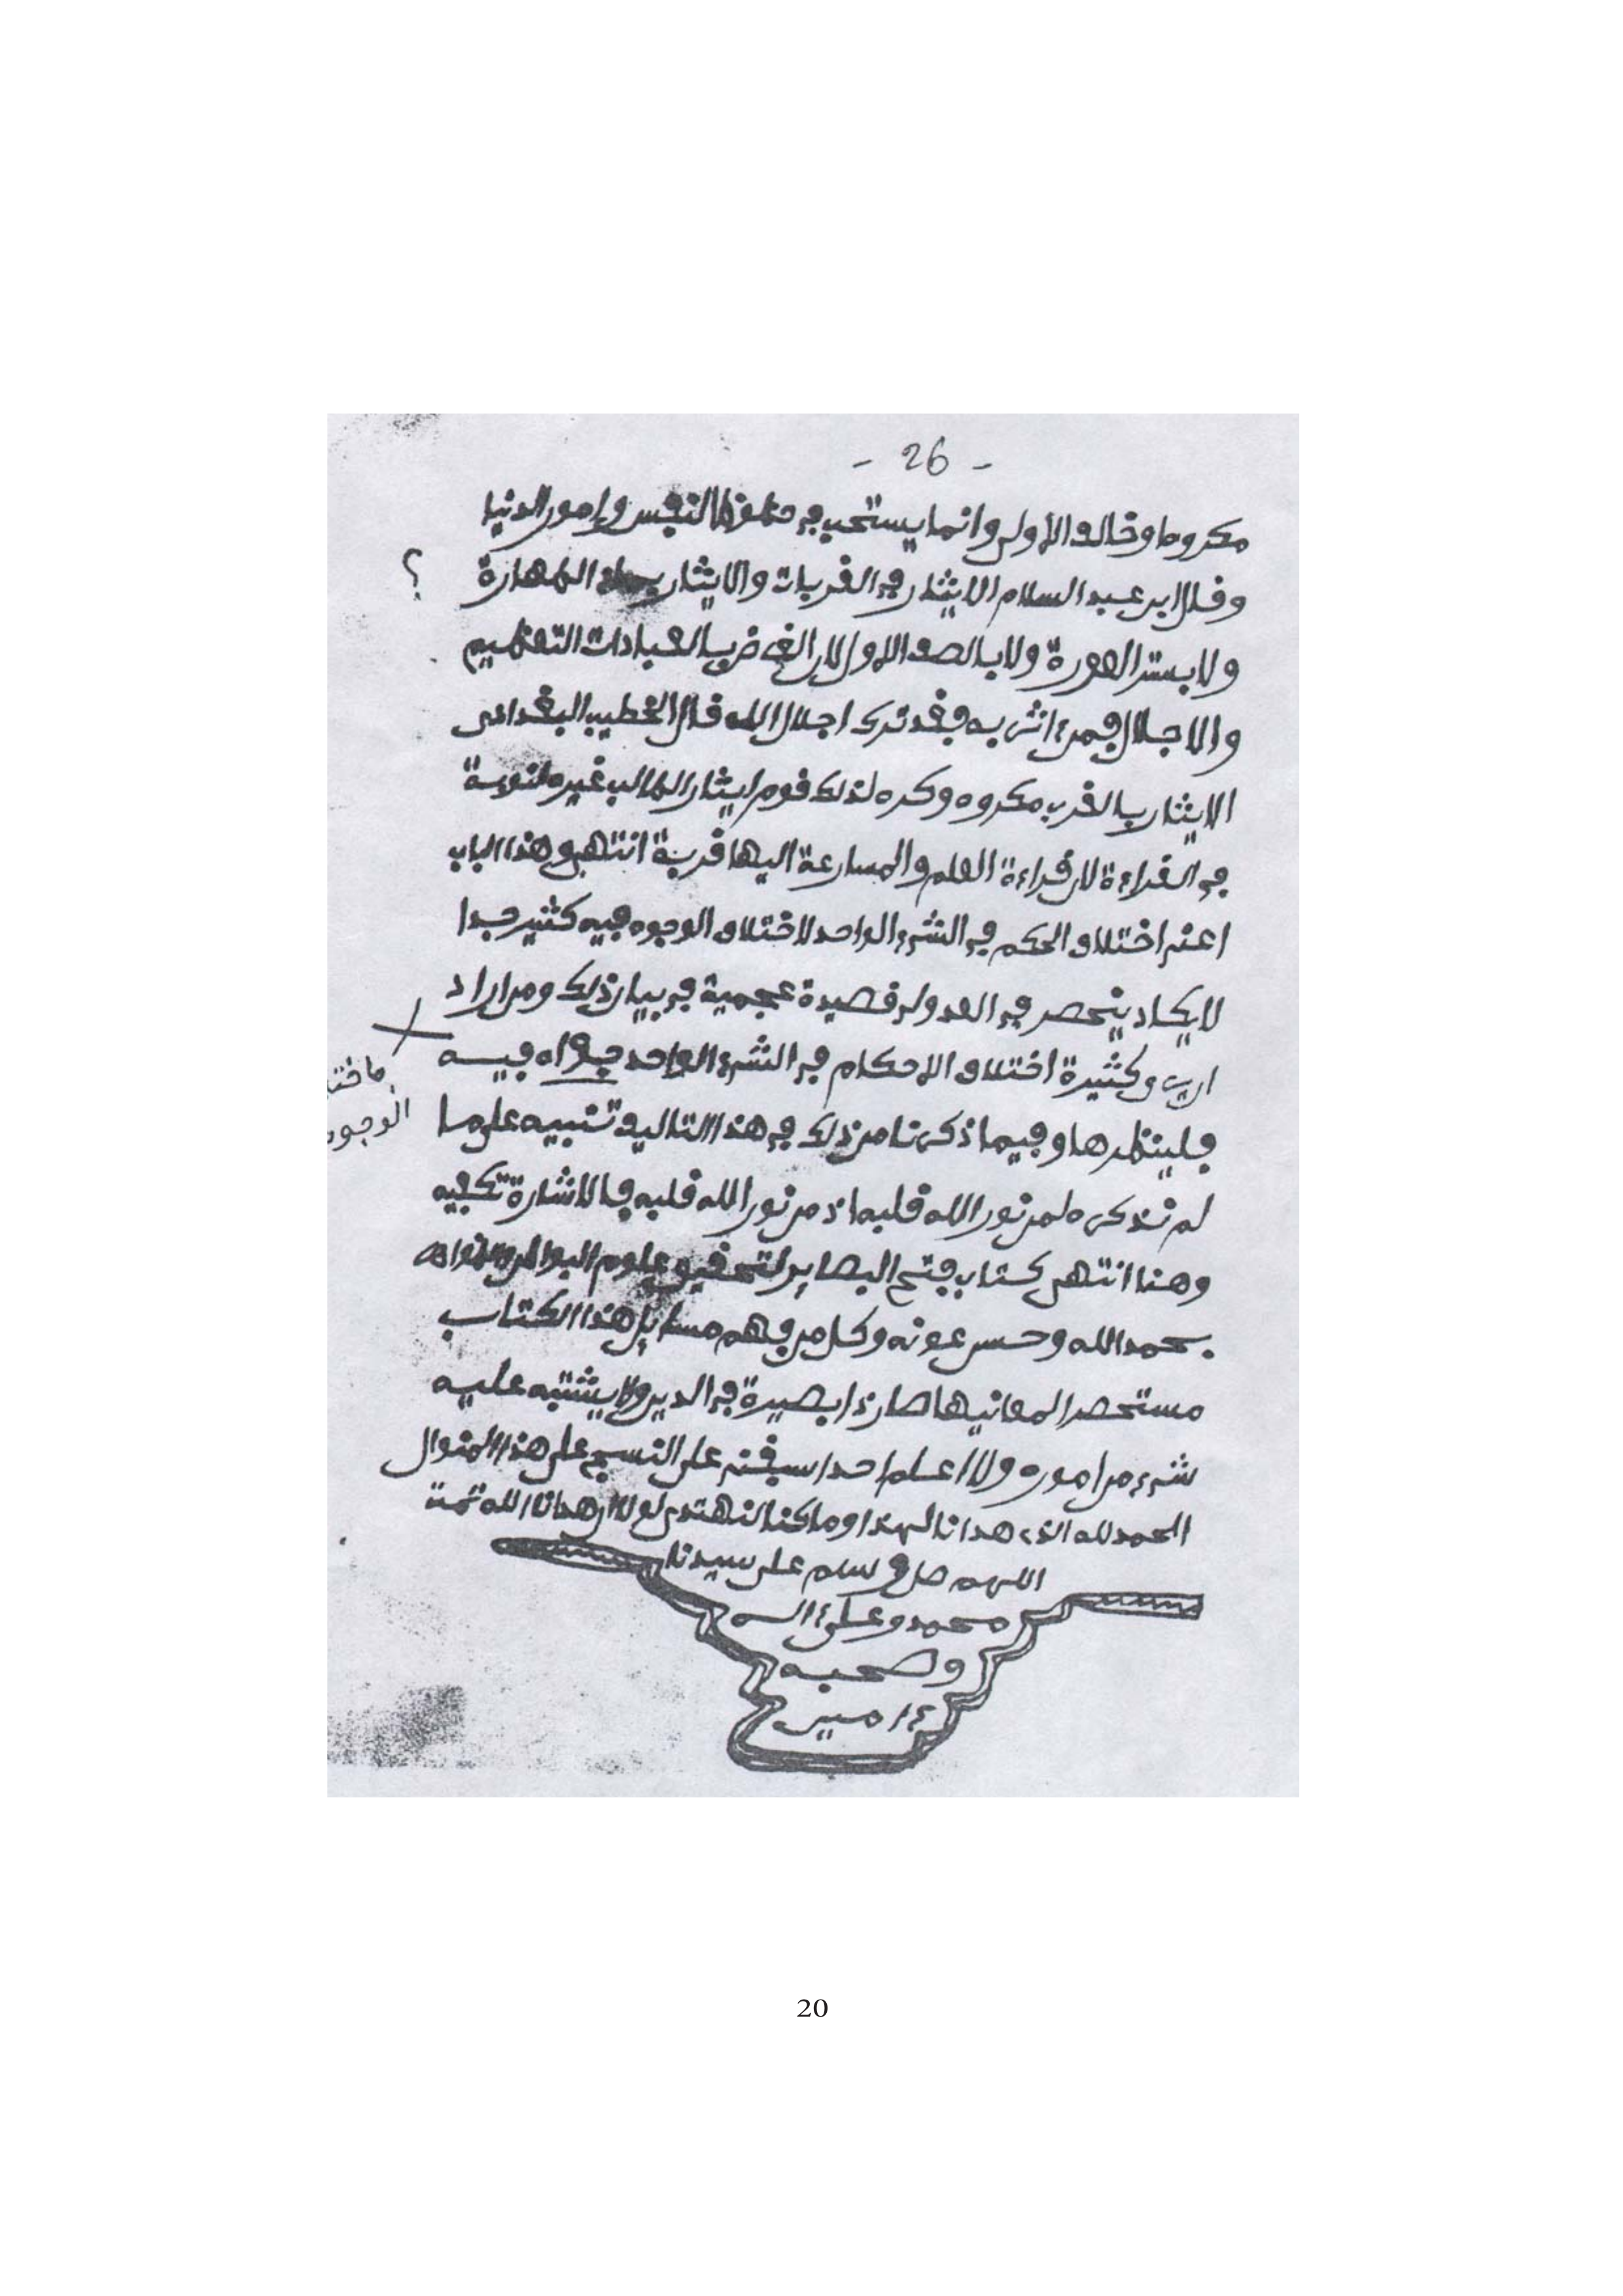 - 26 -
مكروها وخلاف الأولى وانما يستحب في حظوظ النفس وامور الدنيا
وقال ابن عبد السلام لا ايثار في القربات ولا ايثار بماء الطهارة
؟
ولا بستر العورة ولا بالصف الاول لان الغرض بالعبادات التعظيم
والاجلال فمن ءاثر به فقد ترك اجلال الله قال الخطيب البغدادي
الايثار بالقرب مكروه وكره لذلك قوم ايثار الطالب غيره لنوبته
في القراءة لان قراءة العلم والمسارعة اليها قربة انتهى وهذا الباب
اعني اختلاف الحكم في الشيء الواحد لاختلاف الوجوه فيه كثير جدا
لا يكاد ينحصر في العد ولي قصيدة عجمية في بيان ذلك ومن اراد
ان يرى كثيرة اختلاف الاحكام في الشيء الواحد فيه
الوجوه
فلينظرها وفيما ذكرنا من ذلك في هذا التاليف تنبيه على ما
لم نذكره لمن نور الله قلبه اذ من نور الله قلبه فالاشارة تكفيه
وهنا انتهى كتاب فتح البصاير لتحقيق علوم البواطن والظواهر
بحمد الله وحسن عونه وكل من فهم مسايل هذا الكتاب
مستحضرا لمعانيها صار ذا بصيرة في الدين ولا يشتبه عليه
شيء من اموره ولا اعلم احدا سبقني على النسج على هذا المنوال
الحمد لله الذي هدانا لهذا وما كنا لنهتدي لولا ان هدانا الله تمت
اللهم صل و سلم على سيدنا
محمد وعلى ءاله
وصحبه
ءامين
20